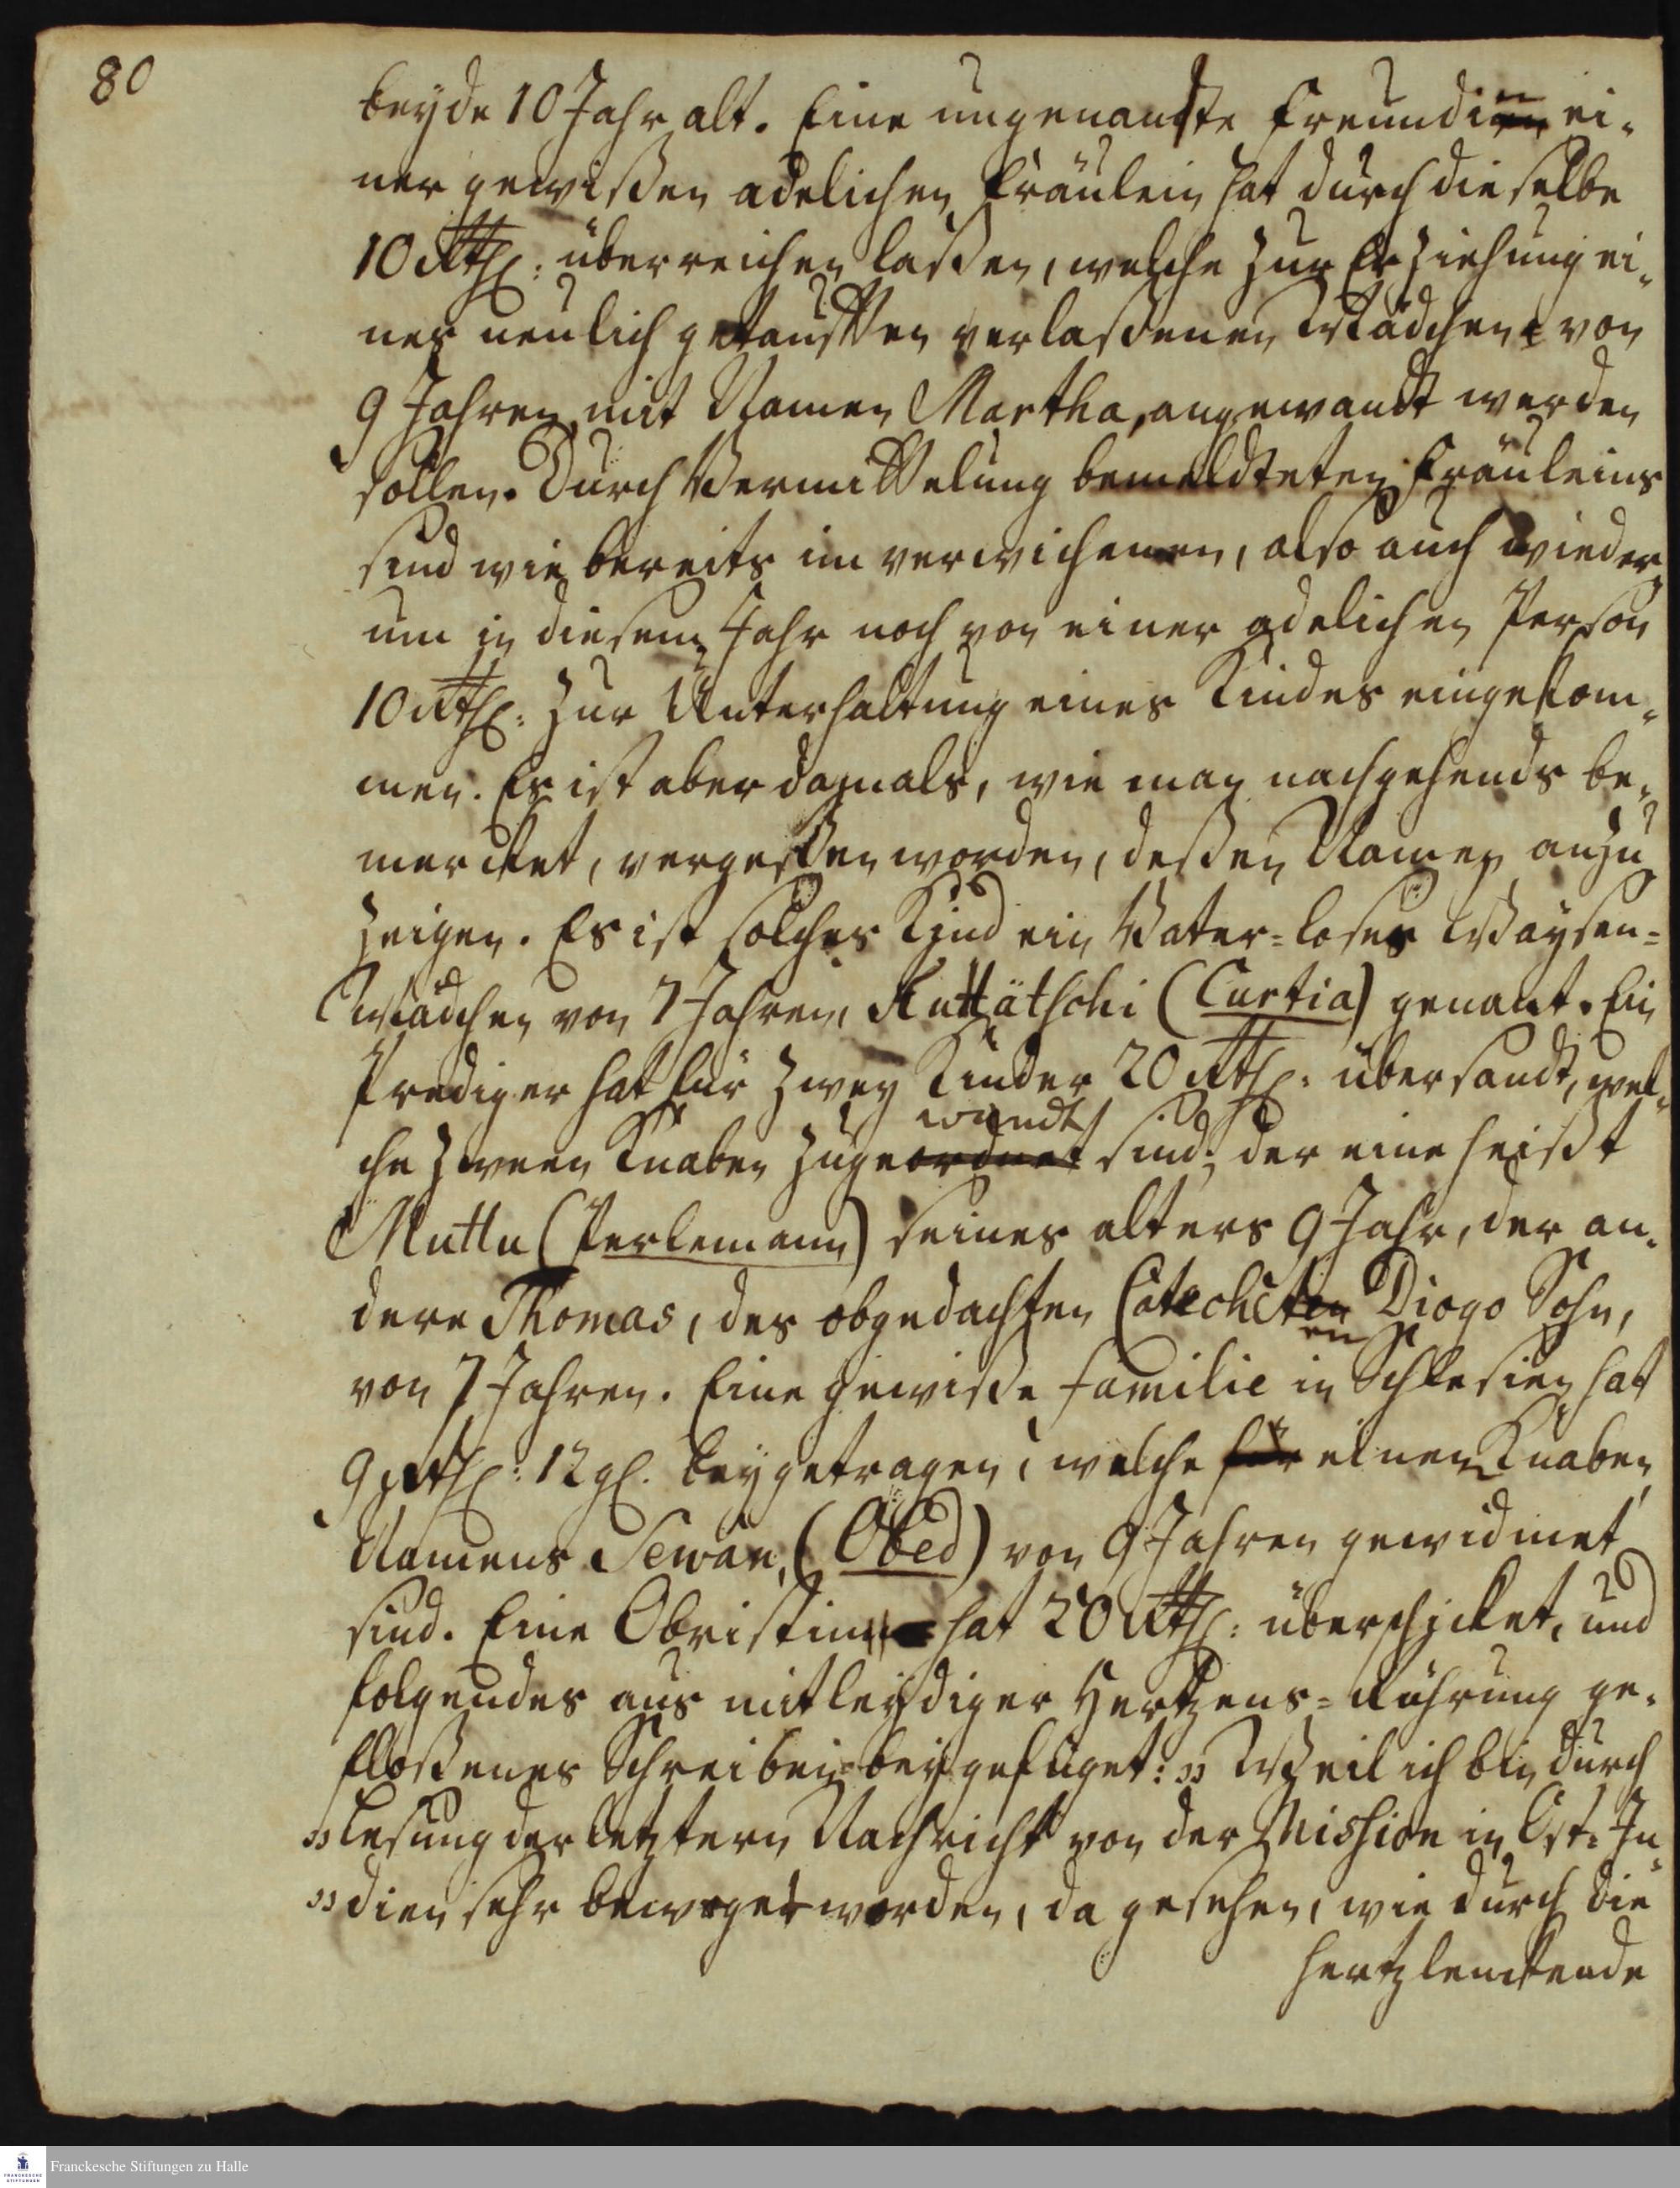 80
beyde 10 Jahr alt. Eine ungenandte Freundin ei-
ner gewißen adelichen Fräulein hat durch dieselbe
10 Rthl: überreichen laßen, welche zur Erziehung ei-
nes neulich getaufften verlaßenen Mädchen von
9 Jahren, mit Namen Martha, angewandt werden
sollen. Durch Vermittelung bemeldteten Fräuleins
sind wie bereits im verwichenen, also auch wieder
um in diesem Jahr noch von einer adelichen Person
10 Rthl: zur Unterhaltung eines Kindes eingekom-
men. Es ist aber damals, wie man nachgehends be-
mercket, vergeßen worden, deßen Namen anzu
zeigen. Es ist solches Kind ein Vater-loses Waysen-
Mädchen von 7 Jahren, Kuttätschi (Curtia) genant. Ein
Prediger hat für zwey Kinder 20 Rthl: übersandt, wel-
wandt
che zween Knaben zugeordnet sind; der eine heißt
Muttu (Perlemann) seines alters 9 Jahr, der an-
dere Thomas, des obgedachten Catecheten Diogo Sohn,
en
von 7 Jahren. Eine gewiße Familie in Schlesien hat
9 Rthl: 12 gl. beygetragen, welche für einen Knaben
Namens Sewan, (Obed) von 9 Jahren gewidmet
sind. Eine Obristin hat 20 Rthl: überschicket, und
folgendes aus mitleydiger Hertzens-Rührung ge-
floßenes Schreiben beygefüget: „ Weil ich bin durch
„ Lesung der letztern Nachricht von der Mission in Ost-In
„ dien sehr beweget worden, da gesehen, wie durch die
hertzlenckende
Franckesche Stiftungen zu Halle
FRANCKESCHE
STIFTUNGEN